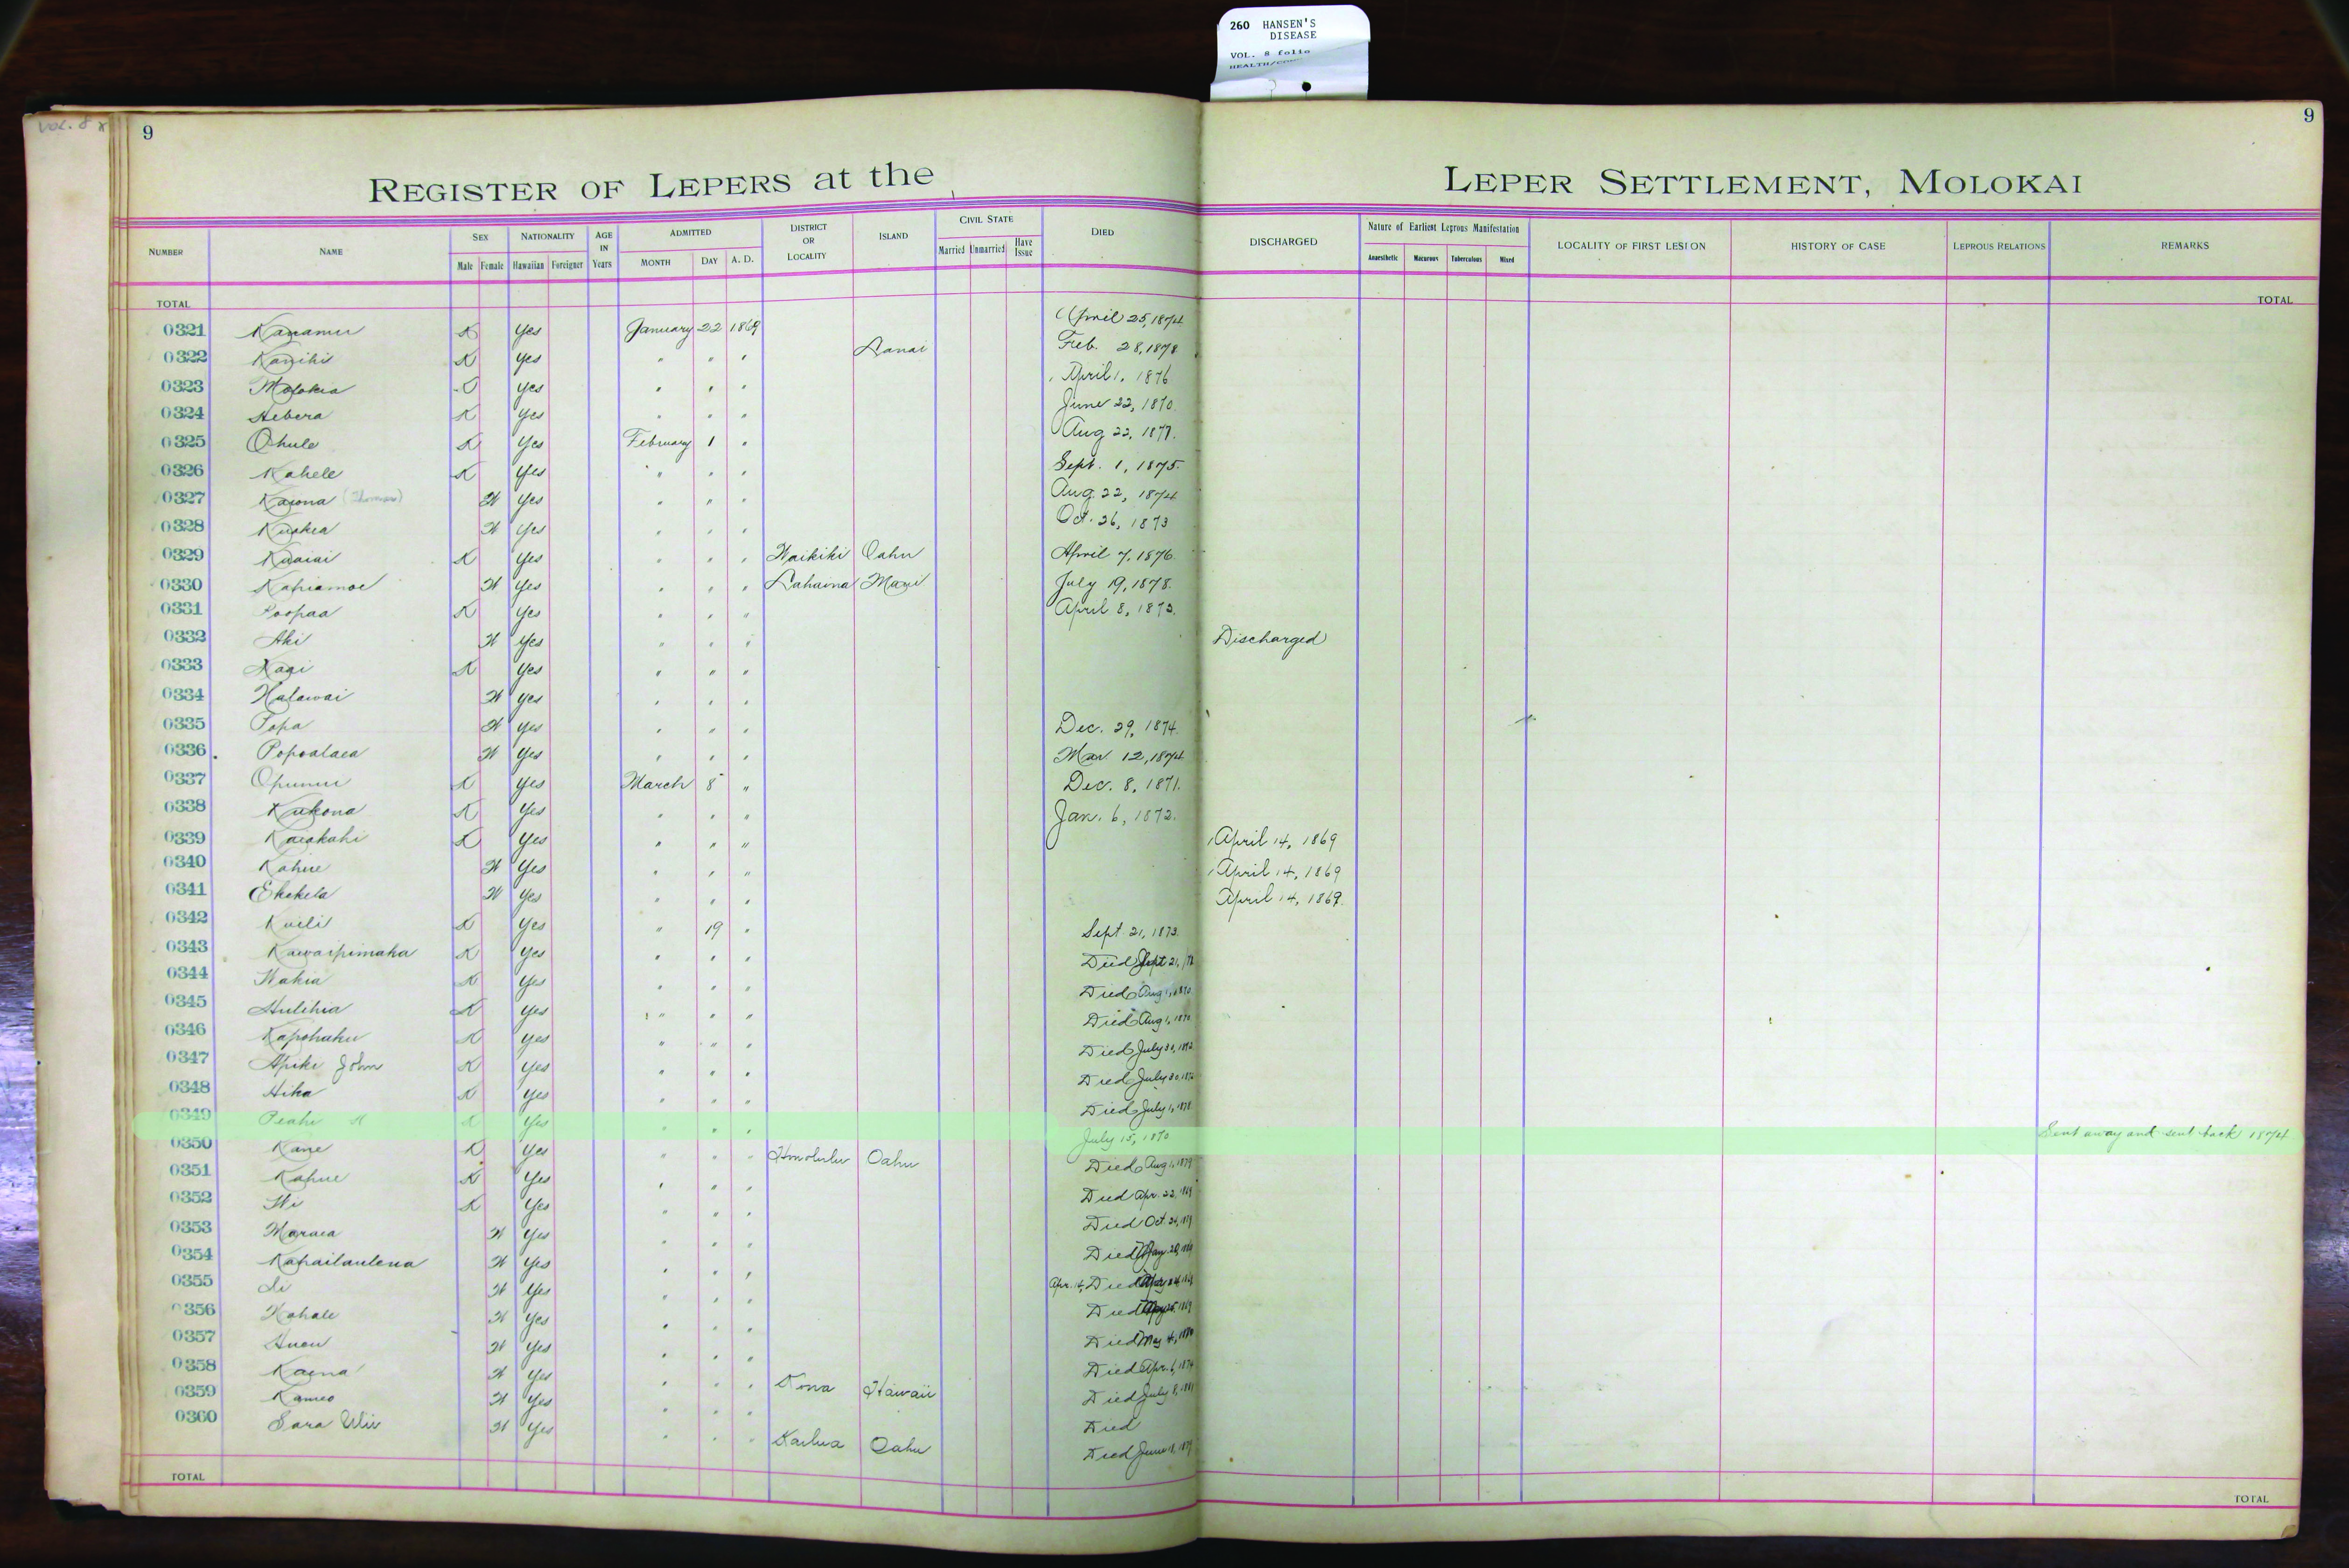 260 HANSEN'S
DISEASE
VOL. 8 folio
VOL. 8
9
9
REGISTER OF LEPERS at the LEPER SETTLEMENT, MOLOKAI
NUMBER NAME SEX NATIONALITY AGE IN Years ADMITTED DISTRICT OR LOCALITY ISLAND CIVIL STATE DIED DISCHARGED Nature of Earliest Leprous Manifestation LOCALITY OF FIRST LESION HISTORY OF CASE LEPROUS RELATIONS REMARKS
Male Female Hawaiian Foreigner MONTH DAY A. D. Married Unmarried Have Issue Anaesthetic Macurous Tuberculous Mixed
TOTAL TOTAL
0321 Kanamu K Yes January 22 1869 April 25, 1874
0322 Kanihi K Yes " " " Lanai Feb. 28, 1878
0323 Molokia Yes " " " April 1, 1876
0324 Hebera K Yes " " " June 22, 1870
0325 Ohule K Yes February 1 " Aug 22, 1877.
0326 Kahele K Yes " " " Sept. 1, 1875.
0327 Kaiona (Thomas) W Yes " " " Aug. 22, 1874
0328 Kuakea W Yes " " " Oct. 26, 1873
0329 Kuaiai K Yes " " " Waikiki Oahu April 7, 1876
0330 Kahiamoe W Yes " " " Lahaina Maui July 19, 1878.
0331 Poopaa K Yes " " " April 8, 1873.
0332 Aki W Yes " " " Discharged
0333 Kaai K Yes " " "
0334 Halawai W Yes " " "
0335 Popa W Yes " " " Dec. 29, 1874
0336 Popoalaea W Yes " " " Mar 12, 1874
0337 Opunui K Yes March 8 " Dec. 8, 1871.
0338 Kukona K Yes " " " Jan. 6, 1872.
0339 Kaiakahi K Yes " " " April 14, 1869
0340 Kahue W Yes " " " April 14, 1869
0341 Ekekela W Yes " " " April 14, 1869.
0342 Kuili K Yes " 19 " Sept. 21, 1873.
0343 Kawaipimaka K Yes " " " Died Sept 21,
0344 Wakia K Yes " " " Died Aug 1, 1870
0345 Hulihia K Yes " " " Died Aug 1, 1870
0346 Kapohaku K Yes " " " Died July 30, 1872
0347 Apiki John K Yes " " " Died July 30, 1872
0348 Hika K Yes " " " Died July 1, 1878
0349 Peahi K Yes " " " July 15, 1870 Sent away and sent back 1874
0350 Kane K Yes " " " Honolulu Oahu Died Aug 1, 1879
0351 Kahue K Yes " " " Died Apr. 22, 1869
0352 Wi K Yes " " " Died Oct. 24, 1869
0353 Maraea W Yes " " " Died May 20, 1869
0354 Kahailaulena W Yes " " " Apr. 14, Died
0355 Li W Yes " " " Died
0356 Kahale W Yes " " " Died May 4, 1880
0357 Auou W Yes " " " Died Apr. 6, 1874
0358 Kaena W Yes " " " Kona Hawaii Died July 8, 1881
0359 Kameo W Yes " " " Died
0360 Sara Uliu W Yes " " " Kailua Oahu Died June 18, 1879
TOTAL TOTAL